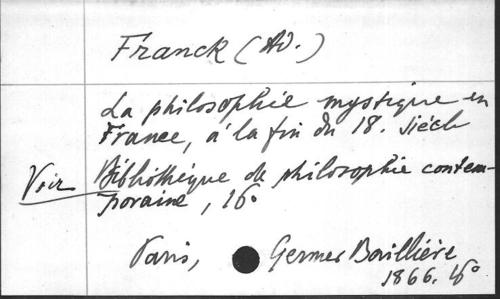 Franck (Ad.)
La philosophie mystique en
France, à la fin du 18. siècle
Voir Bibliothèque de philosophie contem-
poraine, 16°
Paris, Germer Baillière
1866. 16°